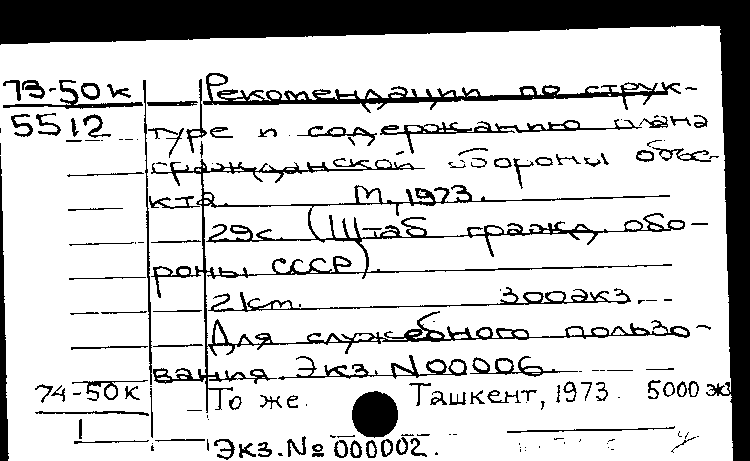 73-50к Рекомендации по струк-
5512 туре и содержанию плана
гражданской обороны объе-
кта. М., 1973.
29с. (Штаб гражд. обо-
роны СССР).
21см. 300экз.
Для служебного пользо-
вания. Экз. N00006.
74-50к То же. Ташкент, 1973. 5000 эк
1
Экз. № 000002.